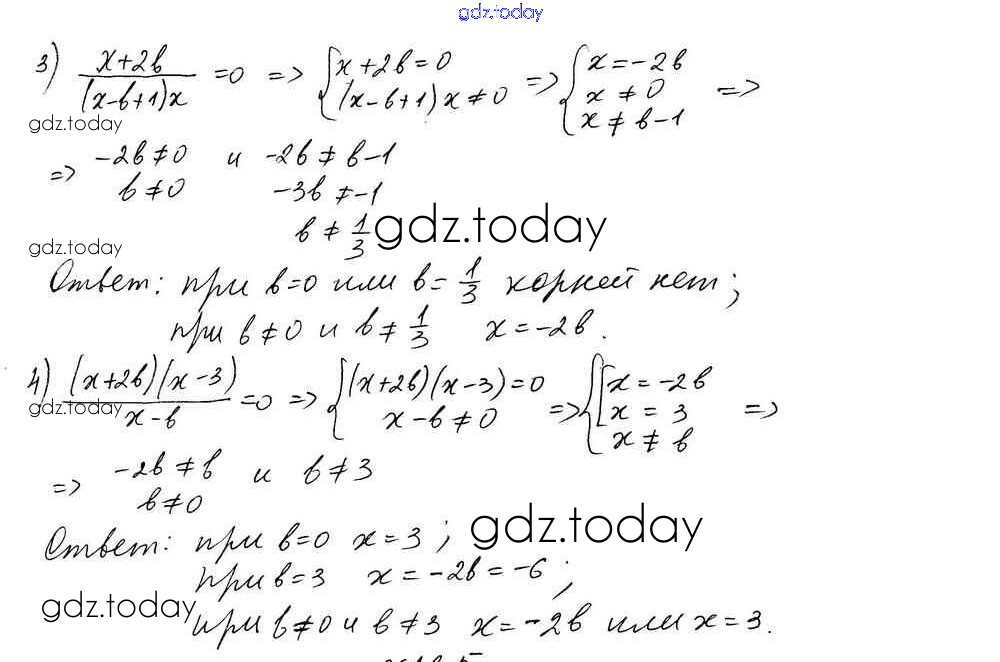 gdz.today
3) (x+2b)/((x-b+1)x) =0 => {x+2b=0 (x-b+1)x≠0 => {x=-2b x≠0 x≠b-1 =>
gdz.today
=> -2b≠0 и -2b≠b-1
b≠0 -3b≠-1
b≠1/3 gdz.today
gdz.today
Ответ: при b=0 или b=1/3 корней нет;
при b≠0 и b≠1/3 x=-2b.
4) ((x+2b)(x-3))/(x-b) =0 => {(x+2b)(x-3)=0 x-b≠0 => {[x=-2b x=3 x≠b =>
gdz.today
=> -2b≠b и b≠3
b≠0
gdz.today
Ответ: при b=0 x=3;
при b=3 x=-2b=-6;
gdz.today
при b≠0 и b≠3 x=-2b или x=3.